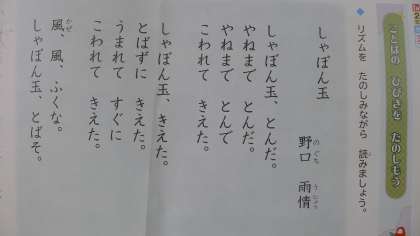 ことばの ひびきを たのしもう
リズムを たのしみながら 読みましょう。
しゃぼん玉
野口 雨情
しゃぼん玉、とんだ。
やねまで とんだ。
やねまで とんで
こわれて きえた。
しゃぼん玉、きえた。
とばずに きえた。
うまれて すぐに
こわれて きえた。
風、風、ふくな。
しゃぼん玉、とばそ。